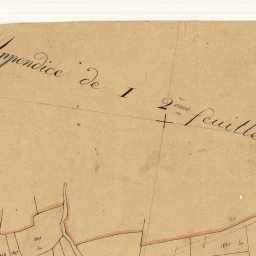 Appendice de I 2ème feuille